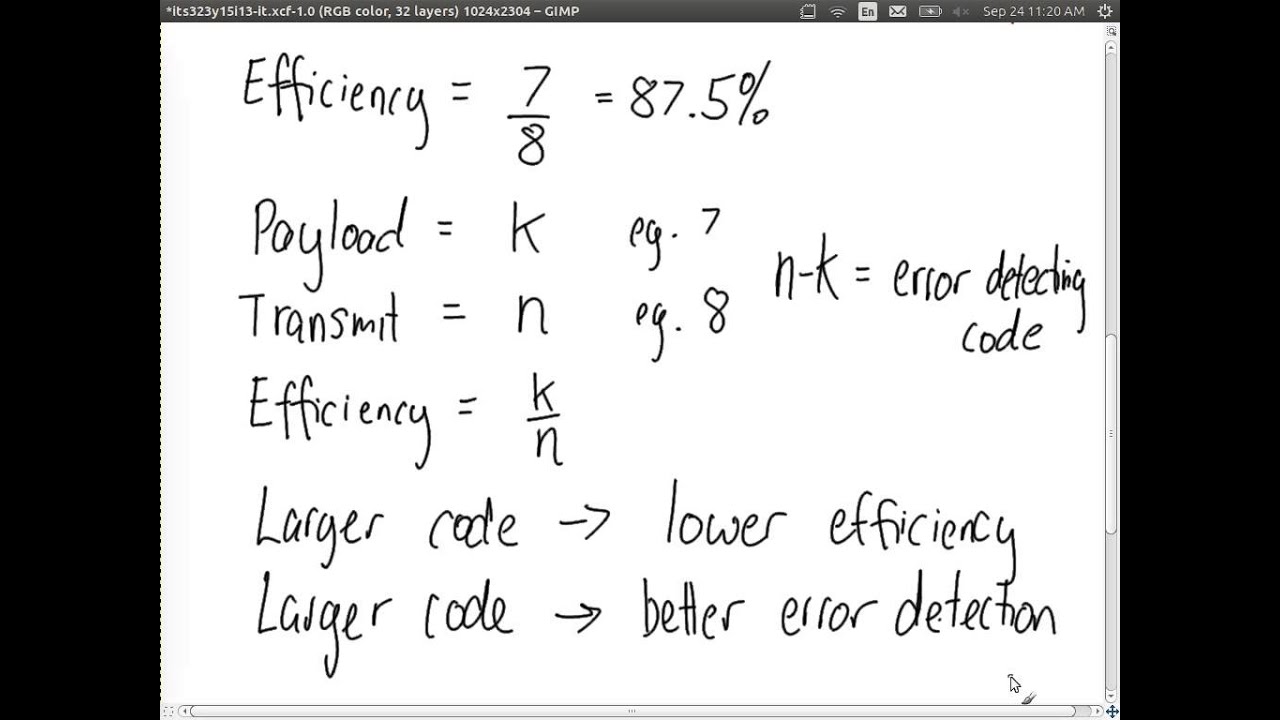 *its323y15i13-it.xcf-1.0 (RGB color, 32 layers) 1024x2304 – GIMP
En
Sep 24 11:20 AM
Efficiency = 7/8 = 87.5%
Payload = k eg. 7
n-k = error detecting
code
Transmit = n eg. 8
Efficiency = k/n
Larger code → lower efficiency
Larger code → better error detection